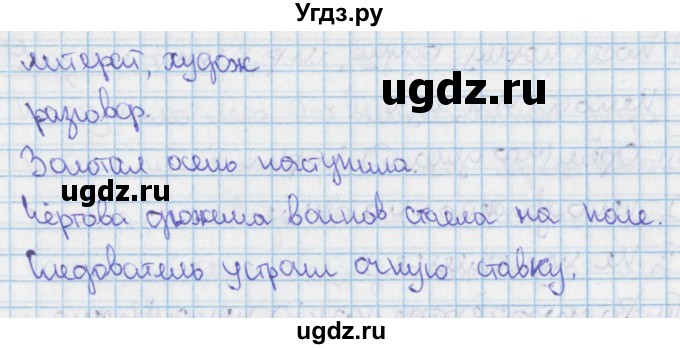 Угдз.ру
литерат, худож
ugdz.ru
разговор.
Золотая осень наступила.
ugdz.ru
Чёртова дюжина воинов стаела на поле.
Следователь устроил очную ставку.
ugdz.ru